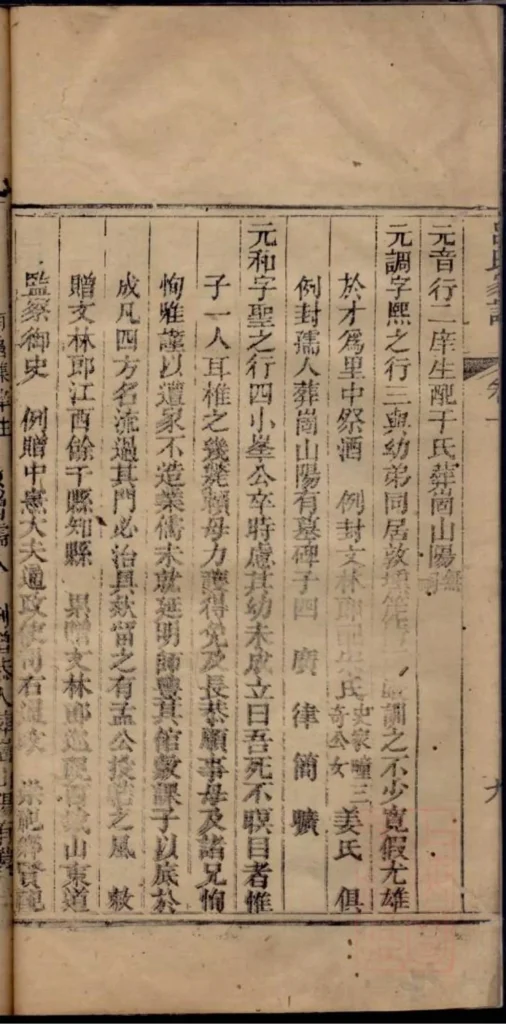 元音行二庠生配于氏葬崗山陽無
元調字熙之行三與幼弟同居敦塤調之不少寬假尤雄
於才為里中祭酒 例封文林郎氏史家疃三奇公女姜氏 俱
例封孺人葬崗山陽有墓碑子四 廣 律 簡 曠
元和字聖之行四小峯公卒時慮其幼未成立曰吾死不瞑目者惟
子一人耳椎之幾斃賴母力護得免及長恭順事母及諸兄恂
恂雅謹以遭家不造業儒未就延明師豐其館穀課子以底於
成凡四方名流過其門必治具歡留之有孟公投轄之風 敕
贈文林郎江西餘干縣知縣 累贈文林郎山東道
監察御史 例贈中憲大夫通政使司右 崇祀鄉賢配
呂氏家譜 卷一 九